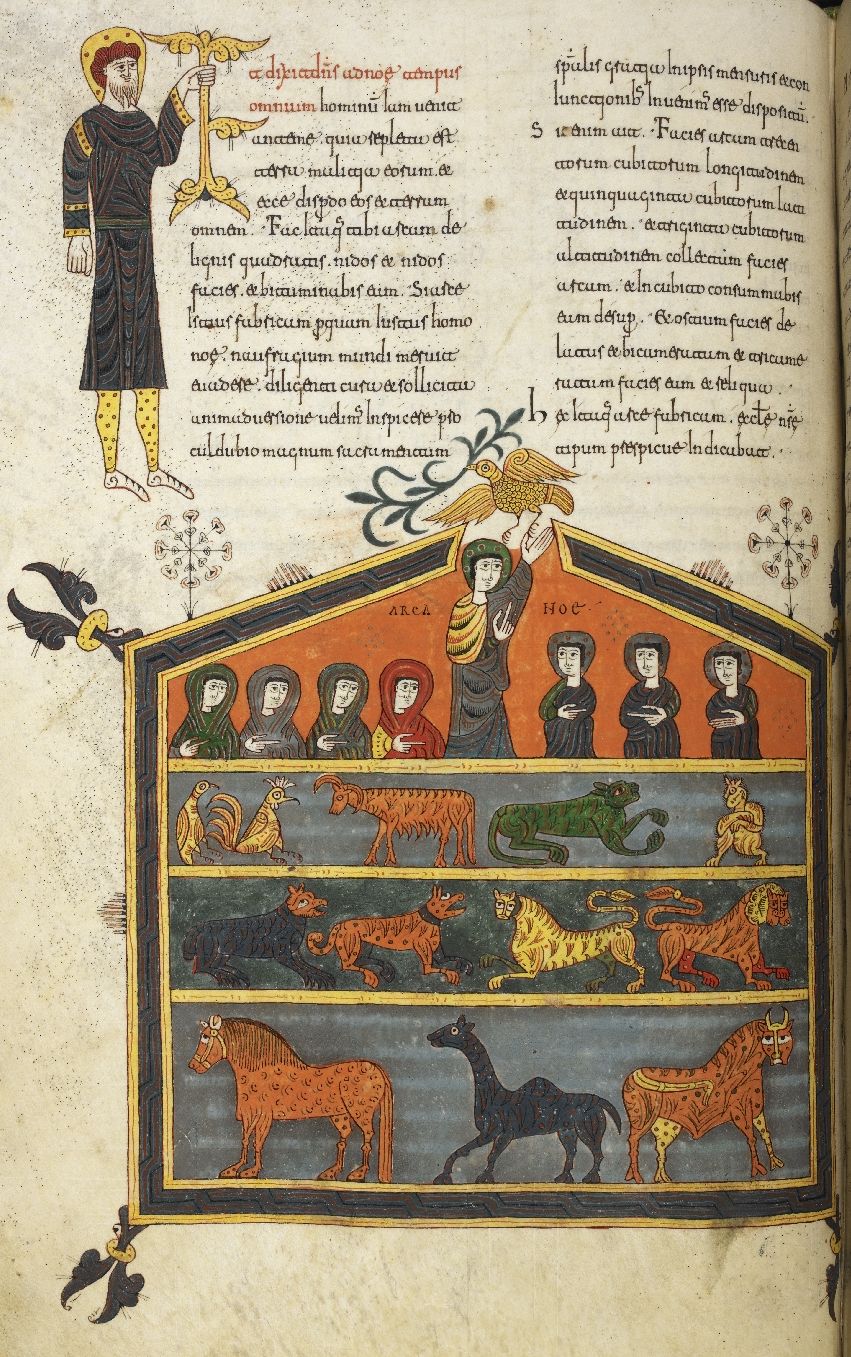 Et dixit dn̄s ad noe tempus
omnium hominū iam uenit
ante me. quia repleta est
terra eorum. et
ecce disp̱do eos et terram
omnem. Fac itaq̄ tibi arcam de
lignis quadratis. nidos et nidos
facies. et bituminabis eam. Si arce
istius fabricam p̱quam iustus homo
noę. naufragium mundi meruit
euadere. diligenti cura et sollicita
animaduersione uelim̄ inspicere pro
cul dubio magnum sacramentum
sp̄ulis in ipsis mensuris et con
iunctionib̄ inuenim̄ esse dispositū.
Sic enim ait. Facies arcam trecen
torum cubitorum longitudinem
et quinquaginta cubitorum lati
tudinem. et triginta cubitorum
altitudinem collectam facies
arcam. et in cubito consummabis
eam desup̱. Et ostium facies de
latus et bicameratam et tricame
ratam facies eam et reliqua.
hęc itaq̄ arce fabricam. eccłe nr̄ę
tipum prespicue indicabat.
ARCA NOE